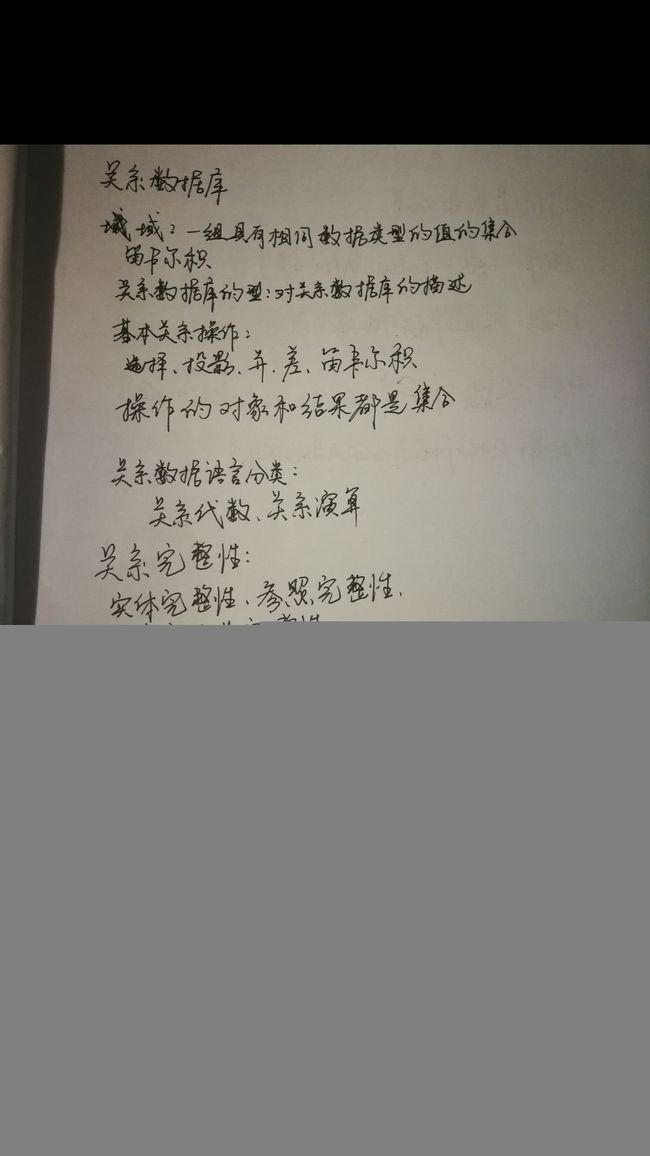 关系数据库
域：一组具有相同数据类型的值的集合
笛卡尔积
关系数据库的型：对关系数据库的描述
基本关系操作：
选择、投影、并、差、笛卡尔积
操作的对象和结果都是集合
关系数据语言分类：
关系代数、关系演算
关系完整性：
实体完整性、参照完整性、